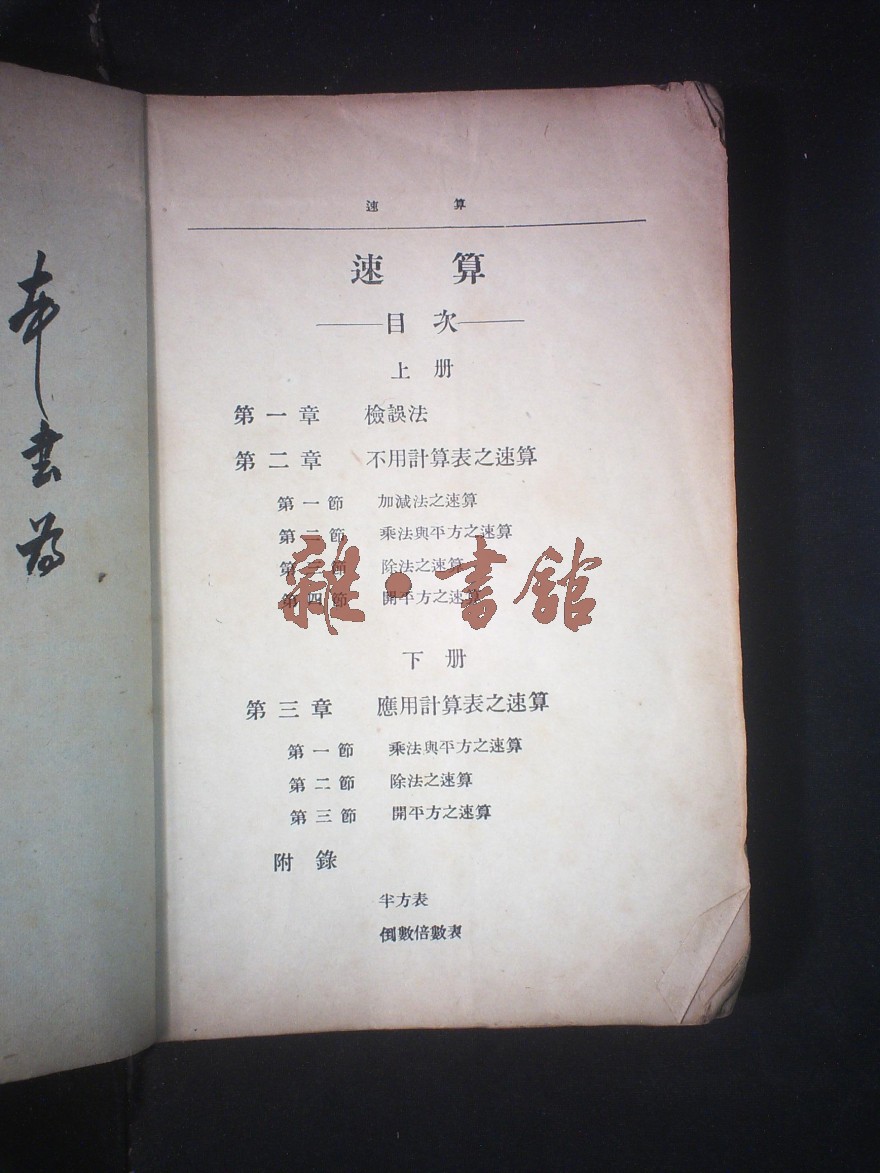 速 算
速 算
——目 次——
上 册
第一章 檢誤法
第二章 不用計算表之速算
第一節 加減法之速算
第二節 乘法與平方之速算
第三節 除法之速算
第四節 開平方之速算
雜·書館
下 册
第三章 應用計算表之速算
第一節 乘法與平方之速算
第二節 除法之速算
第三節 開平方之速算
附 錄
半方表
倒數倍數表